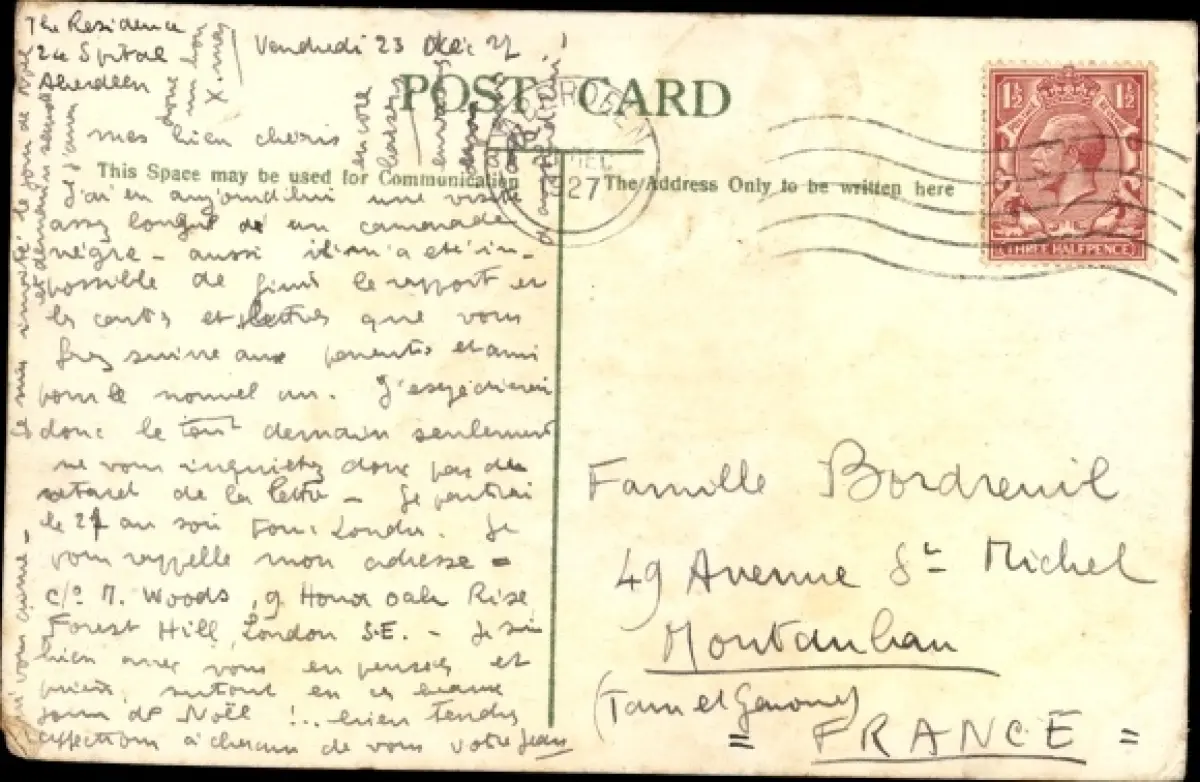 The Residence
24 Spital
Aberdeen
Vendredi 23 Déc 27
POST CARD
mes bien chéris
This Space may be used for Communication
The Address Only to be written here
J'ai eu aujourd'hui une visite
assez longue de un camarade
nègre - aussi il m'a été im-
possible de finir le rapport et
les cartes et lettres que vous
ferez suivre aux parents et amis
pour le nouvel an. J'expédierai
donc le tout demain seulement
ne vous inquiétez donc pas du
retard de la lettre - Je partirai
le 27 au soir pour London. Je
vous rappelle mon adresse =
c/o M. Woods, 9 Honor Oak Rise
Forest Hill, London S.E. - Je suis
bien avec vous en pensées et
prières, surtout en ces beaux
jours de Noël !.. bien tendres
affections à chacun de vous votre Jean
qui vous aime -
DEC
1927
1½ 1½
THREE HALFPENCE
Famille Bordreuil
49 Avenue St Michel
Montauban
(Tarn et Garonne)
= FRANCE =